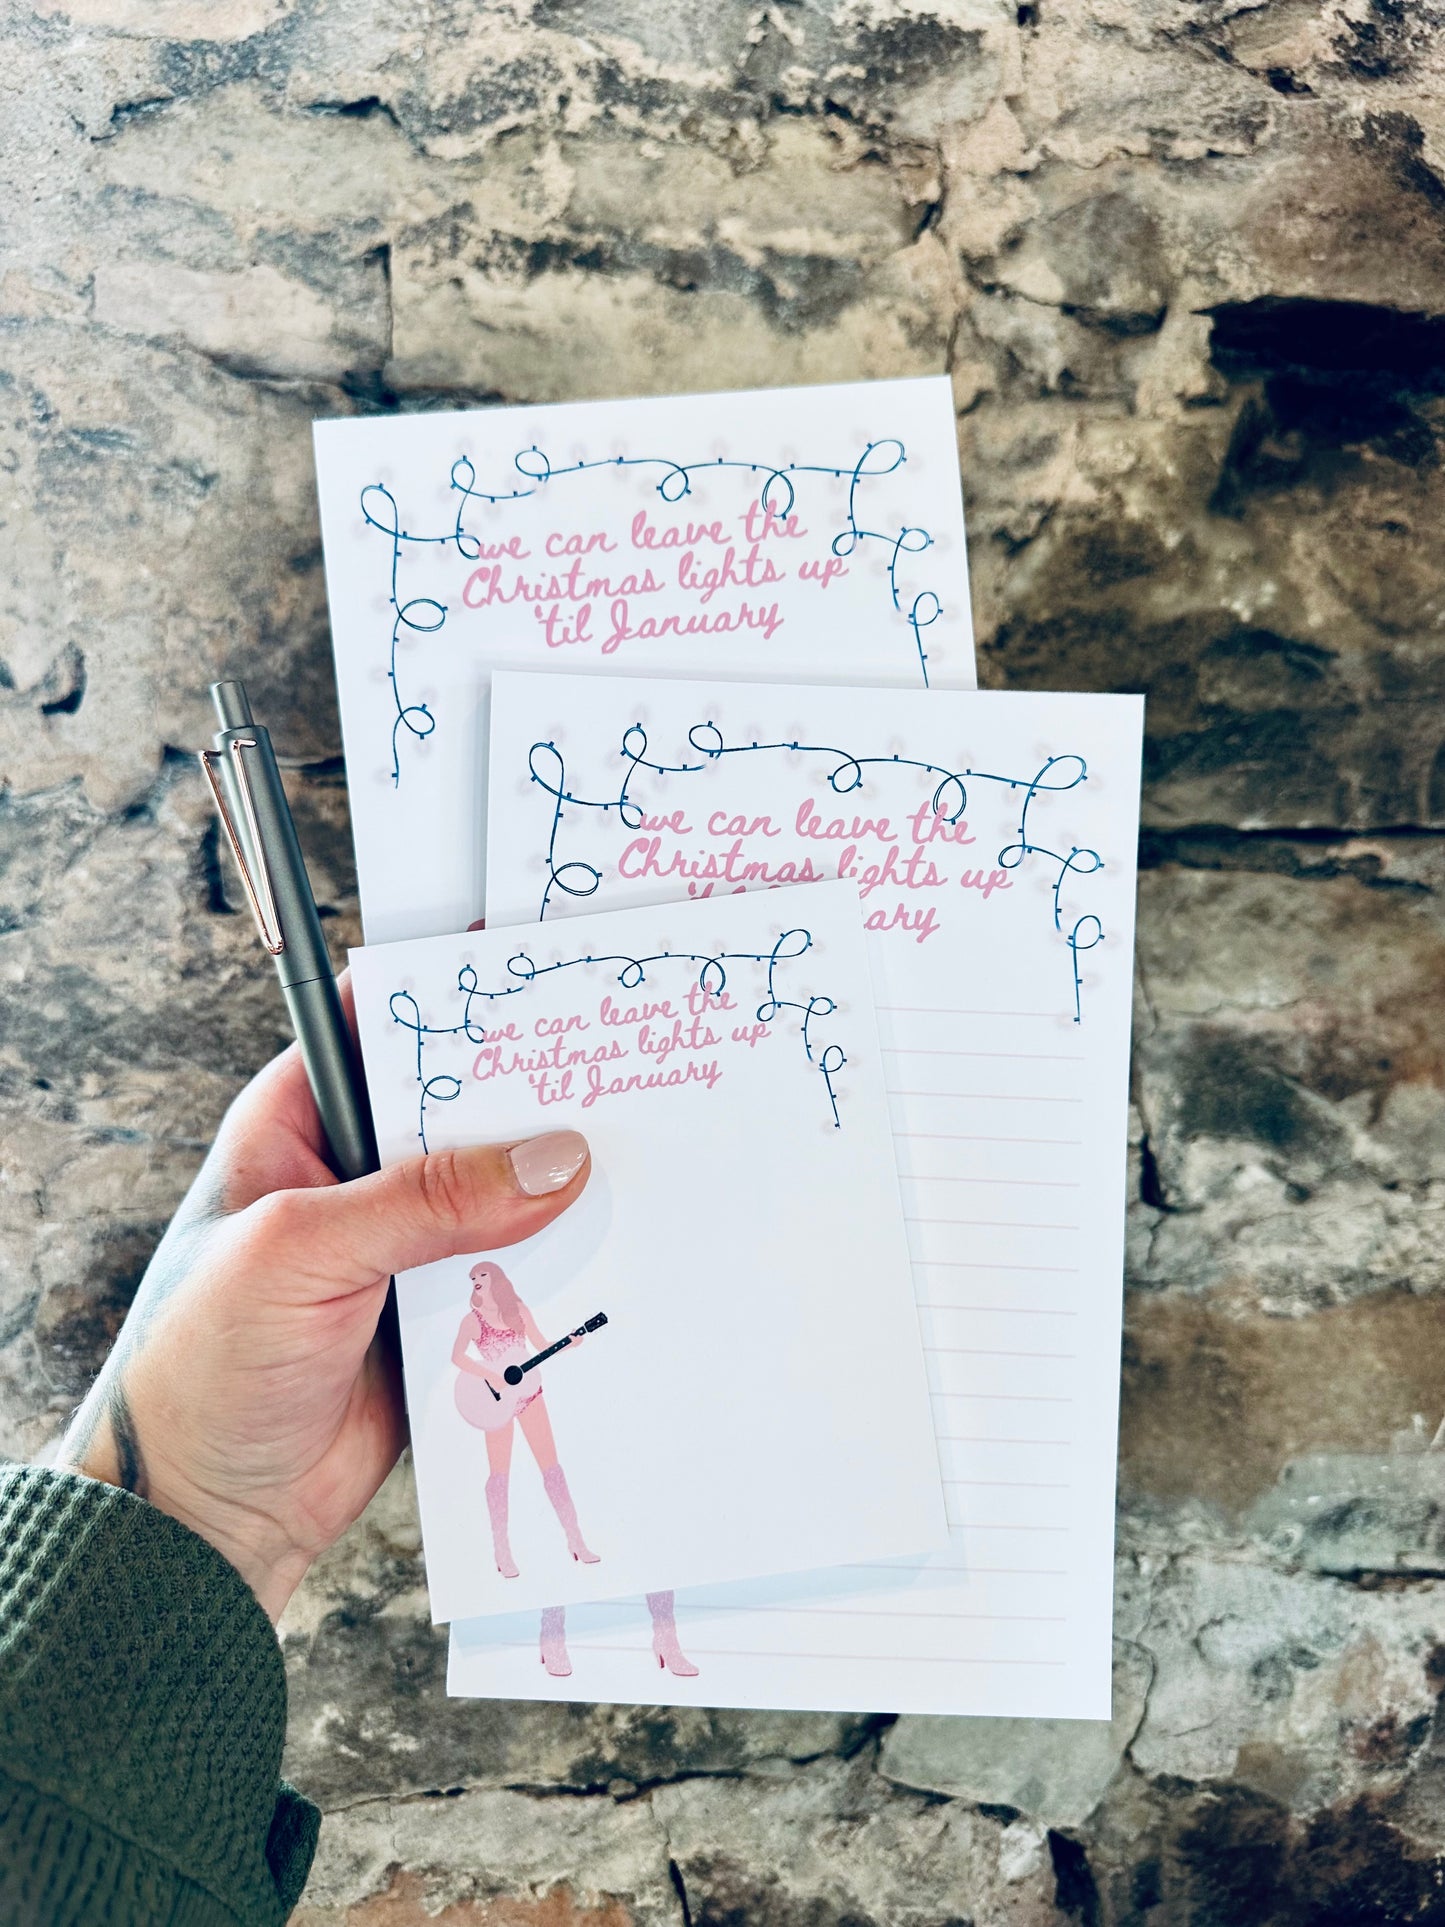 we can leave the
Christmas lights up
'til January
we can leave the
Christmas lights up
ary
we can leave the
Christmas lights up
'til January